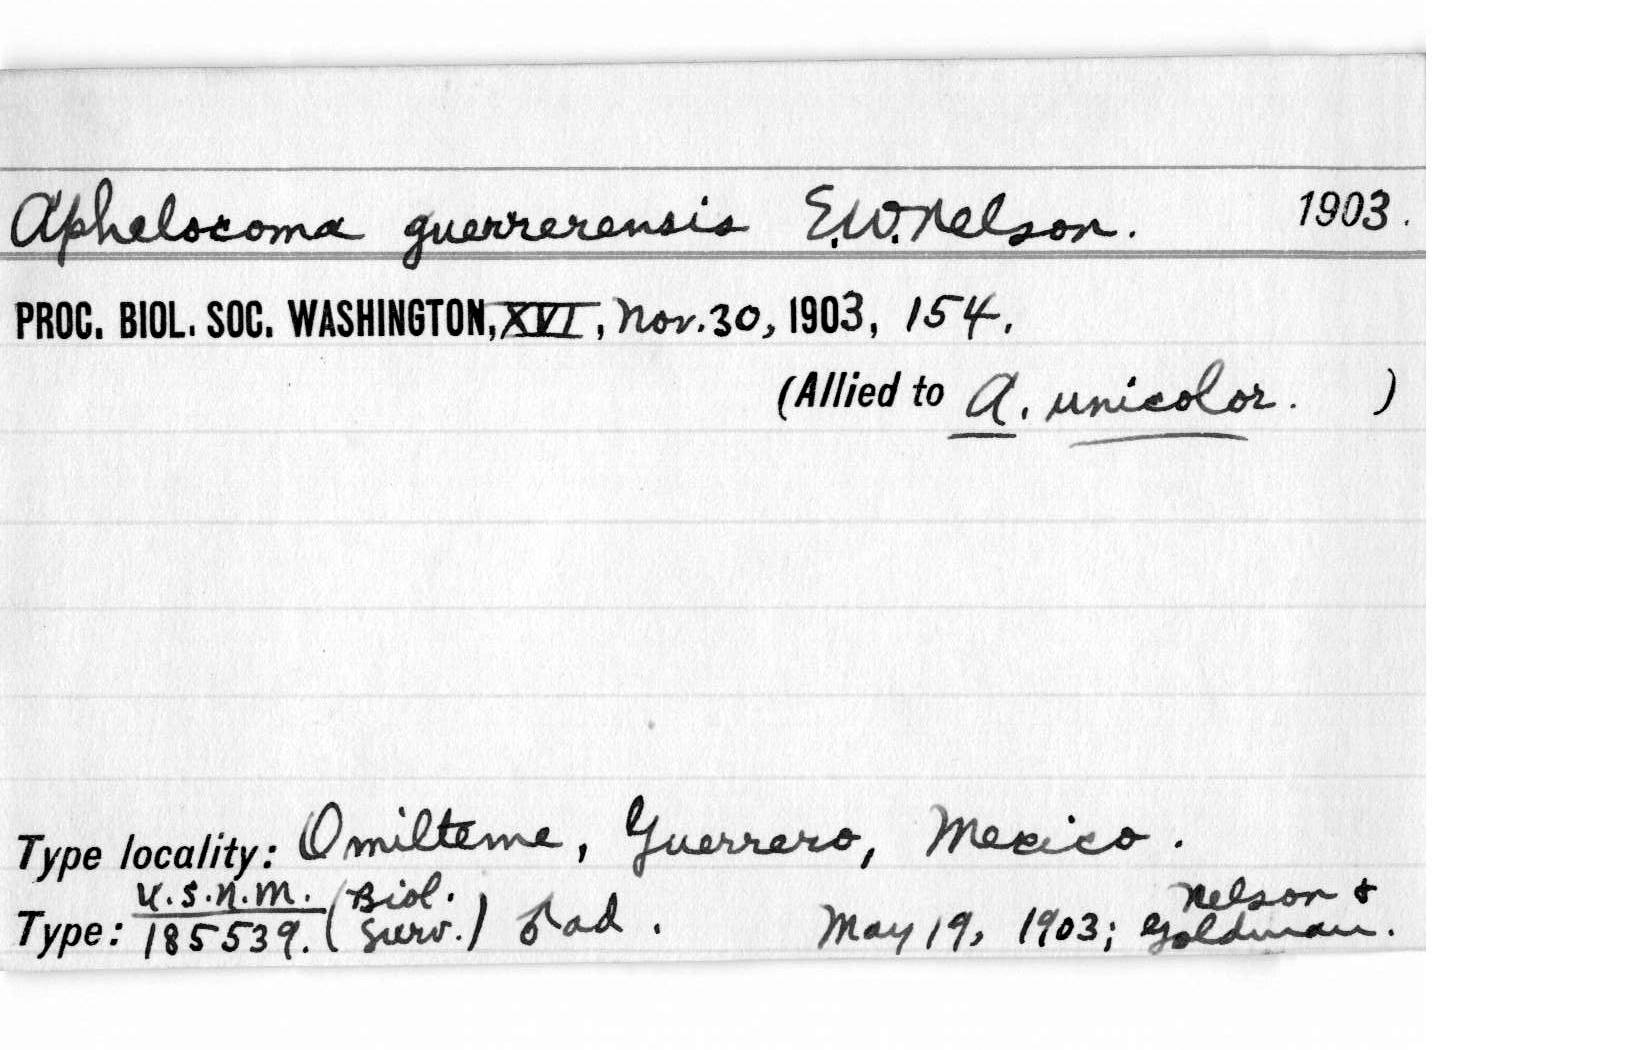 Aphelocoma guerrerensis E.W. Nelson. 1903.
PROC. BIOL. SOC. WASHINGTON, XVI, Nov. 30, 1903, 154.
(Allied to A. unicolor. )
Type locality: Omilteme, Guerrero, Mexico.
Type: U.S.N.M. 185539. (Biol. Surv.) ♂ ad. May 19, 1903; Nelson & Goldman.